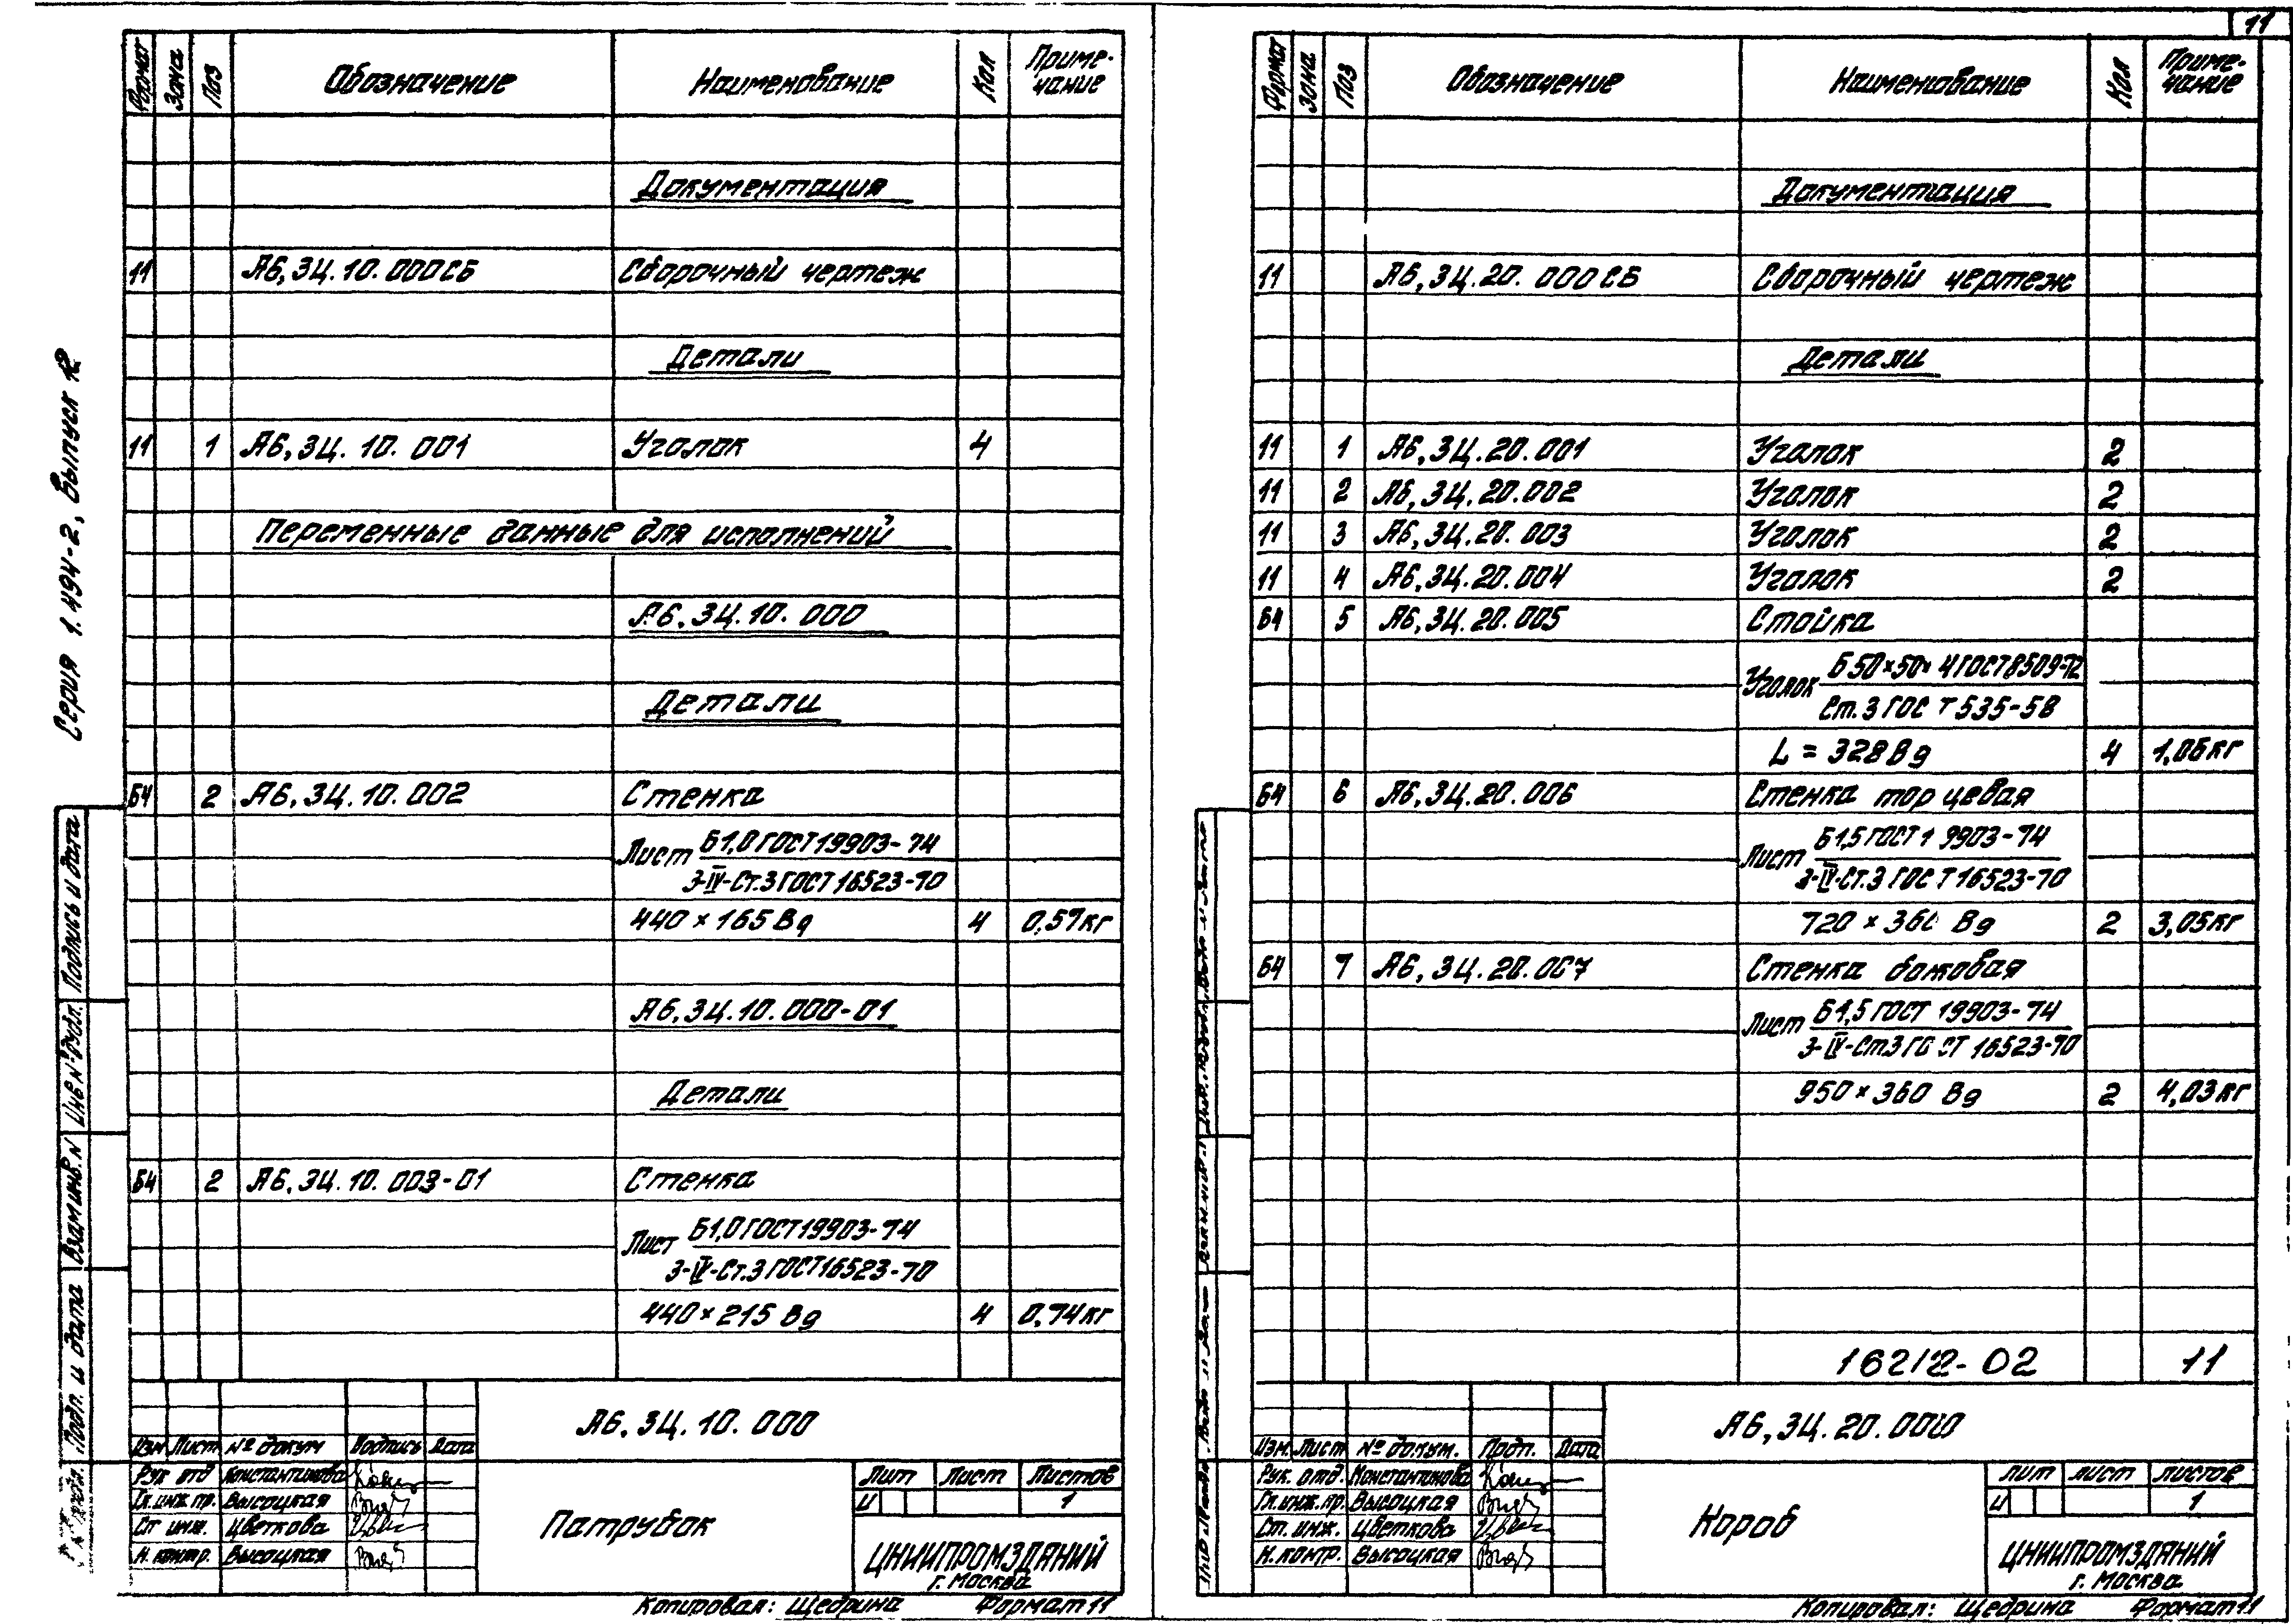 11
Серия 1.494-2, Выпуск 12
Формат Зона Поз Обозначение Наименование Кол Приме-
чание
Документация
11 А6,3Ц.10.000СБ Сборочный чертеж
Детали
11 1 А6,3Ц.10.001 Уголок 4
Переменные данные для исполнений
А6,3Ц.10.000
Детали
Б4 2 А6,3Ц.10.002 Стенка
Лист Б1,0 ГОСТ 19903-74
3-IV-Ст.3 ГОСТ 16523-70
440 × 165 Вд 4 0,57кг
А6,3Ц.10.000-01
Детали
Б4 2 А6,3Ц.10.003-01 Стенка
Лист Б1,0 ГОСТ 19903-74
3-IV-Ст.3 ГОСТ 16523-70
440 × 215 Вд 4 0,74кг
Подпись и дата
Инв № дубл.
Взам.инв.N
Подп. и дата
А6,3Ц.10.000
Изм Лист № докум Подпись Дата
Рук отд Константинова
Гл.инж пр. Высоцкая
Ст инж. Цветкова
Н. контр. Высоцкая
Патрубок
Лит Лист Листов
И 1
ЦНИИПРОМЗДАНИЙ
г. Москва
Копировал: Щедрина Формат 11
Формат Зона Поз Обозначение Наименование Кол Приме-
чание
Документация
11 А6,3Ц.20.000СБ Сборочный чертеж
Детали
11 1 А6,3Ц.20.001 Уголок 2
11 2 А6,3Ц.20.002 Уголок 2
11 3 А6,3Ц.20.003 Уголок 2
11 4 А6,3Ц.20.004 Уголок 2
Б4 5 А6,3Ц.20.005 Стойка
Уголок Б 50×50×4 ГОСТ 8509-72
Ст.3 ГОСТ 535-58
L = 328 Вд 4 1,06кг
Б4 6 А6,3Ц.20.006 Стенка торцевая
Лист Б1,5 ГОСТ 19903-74
3-IV-Ст.3 ГОСТ 16523-70
720 × 360 Вд 2 3,05кг
Б4 7 А6,3Ц.20.007 Стенка боковая
Лист Б1,5 ГОСТ 19903-74
3-IV-Ст3 ГОСТ 16523-70
950 × 360 Вд 2 4,03кг
16212-02 11
А6,3Ц.20.000
Изм. Лист № докум. Подп. Дата
Рук. отд. Константинова
Гл.инж.пр. Высоцкая
Ст. инж. Цветкова
Н. контр. Высоцкая
Короб
Лит Лист Листов
И 1
ЦНИИПРОМЗДАНИЙ
г. Москва
Копировал: Щедрина Формат 11